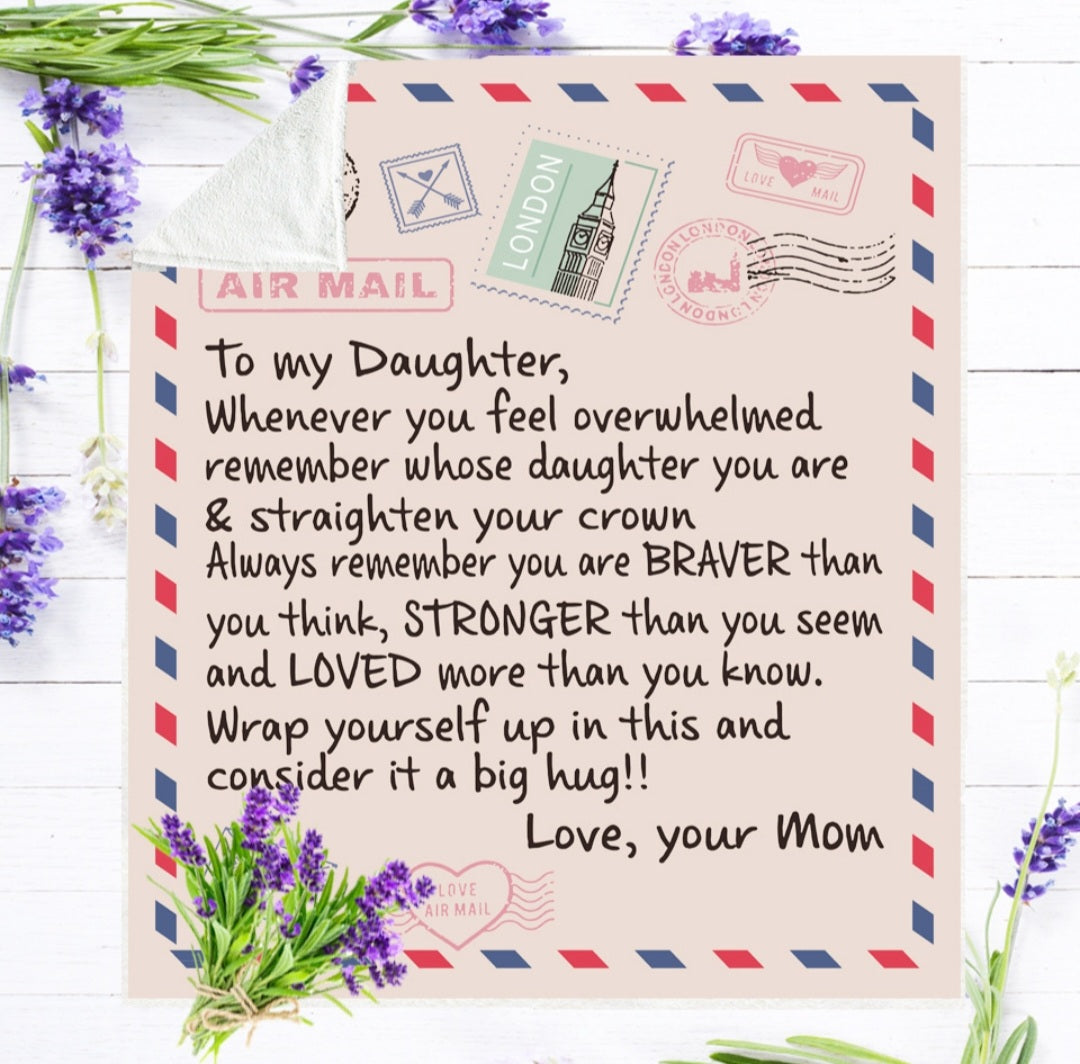 LOVE
MAIL
LONDON
LONDON LONDON LONDON LONDON
AIR MAIL
To my Daughter,
Whenever you feel overwhelmed
remember whose daughter you are
& straighten your crown
Always remember you are BRAVER than
you think, STRONGER than you seem
and LOVED more than you know.
Wrap yourself up in this and
consider it a big hug!!
Love, your Mom
LOVE
AIR MAIL